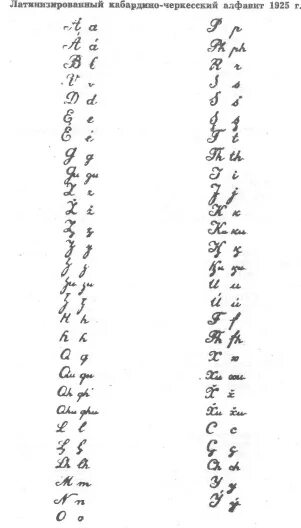 Латинизированный кабардино-черкесский алфавит 1925 г.
A a
Á á
B b
V v
D d
E e
É é
G g
Gu gu
Z z
Ž ž
H h
Q q
Qu qu
Qh qh
Qhu qhu
L l
Lh lh
M m
N n
O o
P p
Ph ph
R r
S s
Ś ś
Ş ş
T t
Th th
I i
J j
K k
Ku ku
Ķ ķ
Ķu ķu
U u
Ú ú
F f
Fh fh
X x
Xu xu
C c
Ch ch
Y y
Ý ý